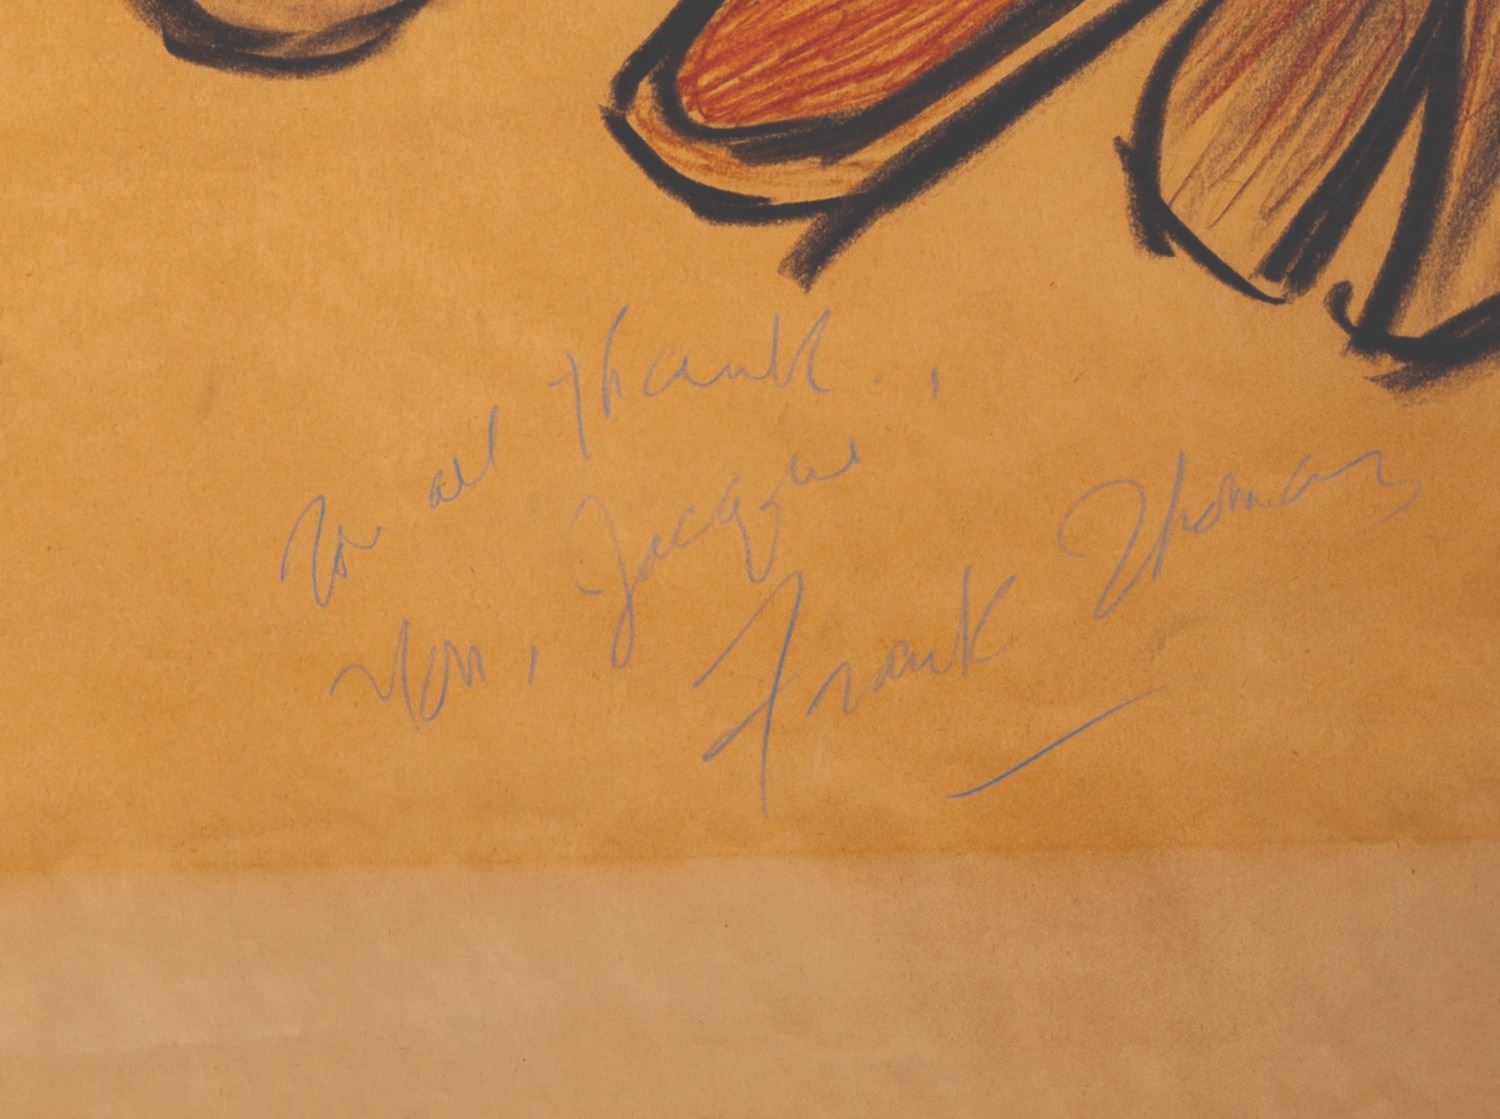 We all thank
You, Jacque
Frank Thomas